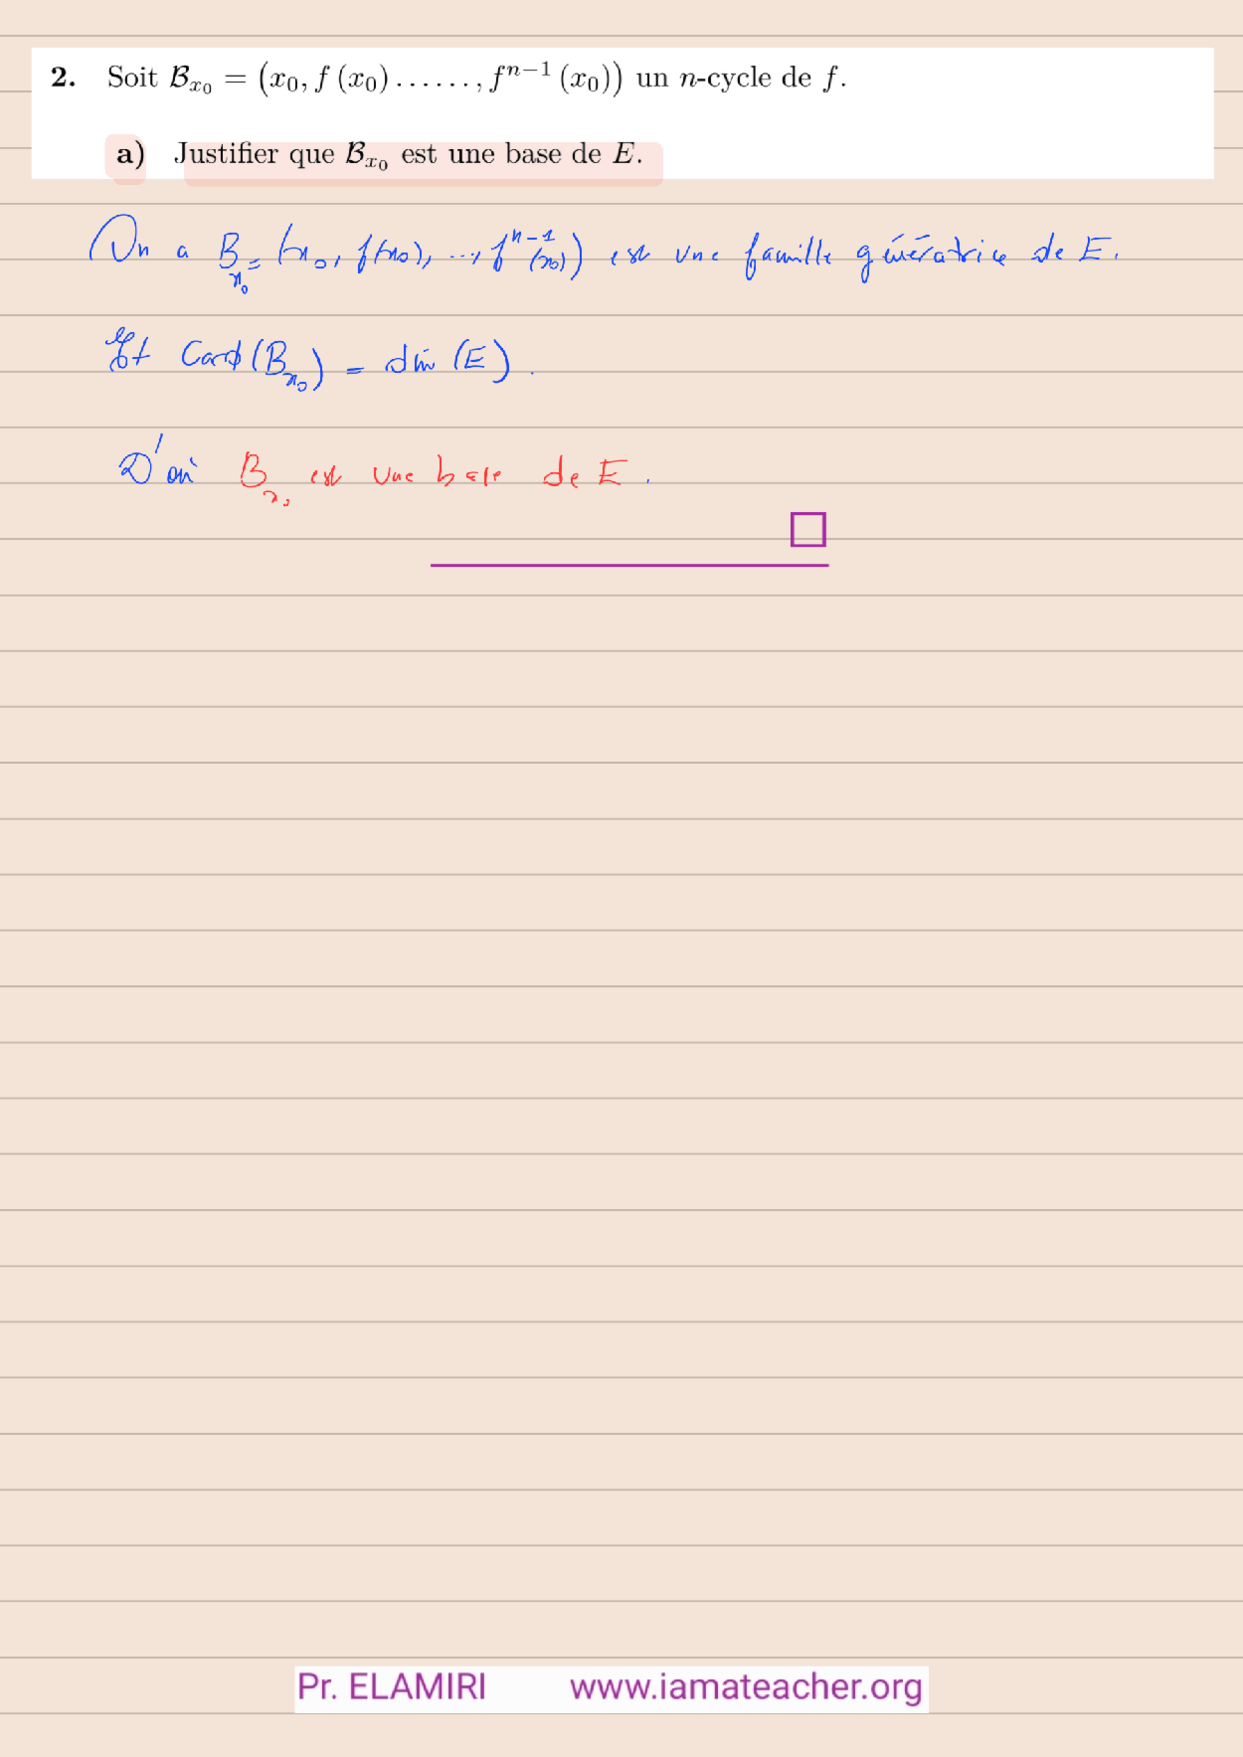 2. Soit 𝓑ₓ₀ = (x₀, f (x₀) . . . . . . , fⁿ⁻¹ (x₀)) un n-cycle de f.
a) Justifier que 𝓑ₓ₀ est une base de E.
On a Bₓ₀ = (x₀, f(x₀), ..., fⁿ⁻¹(x₀)) est une famille génératrice de E.
Et Card(Bₓ₀) = dim (E).
D'où Bₓ₀ est une base de E.
Pr. ELAMIRI www.iamateacher.org